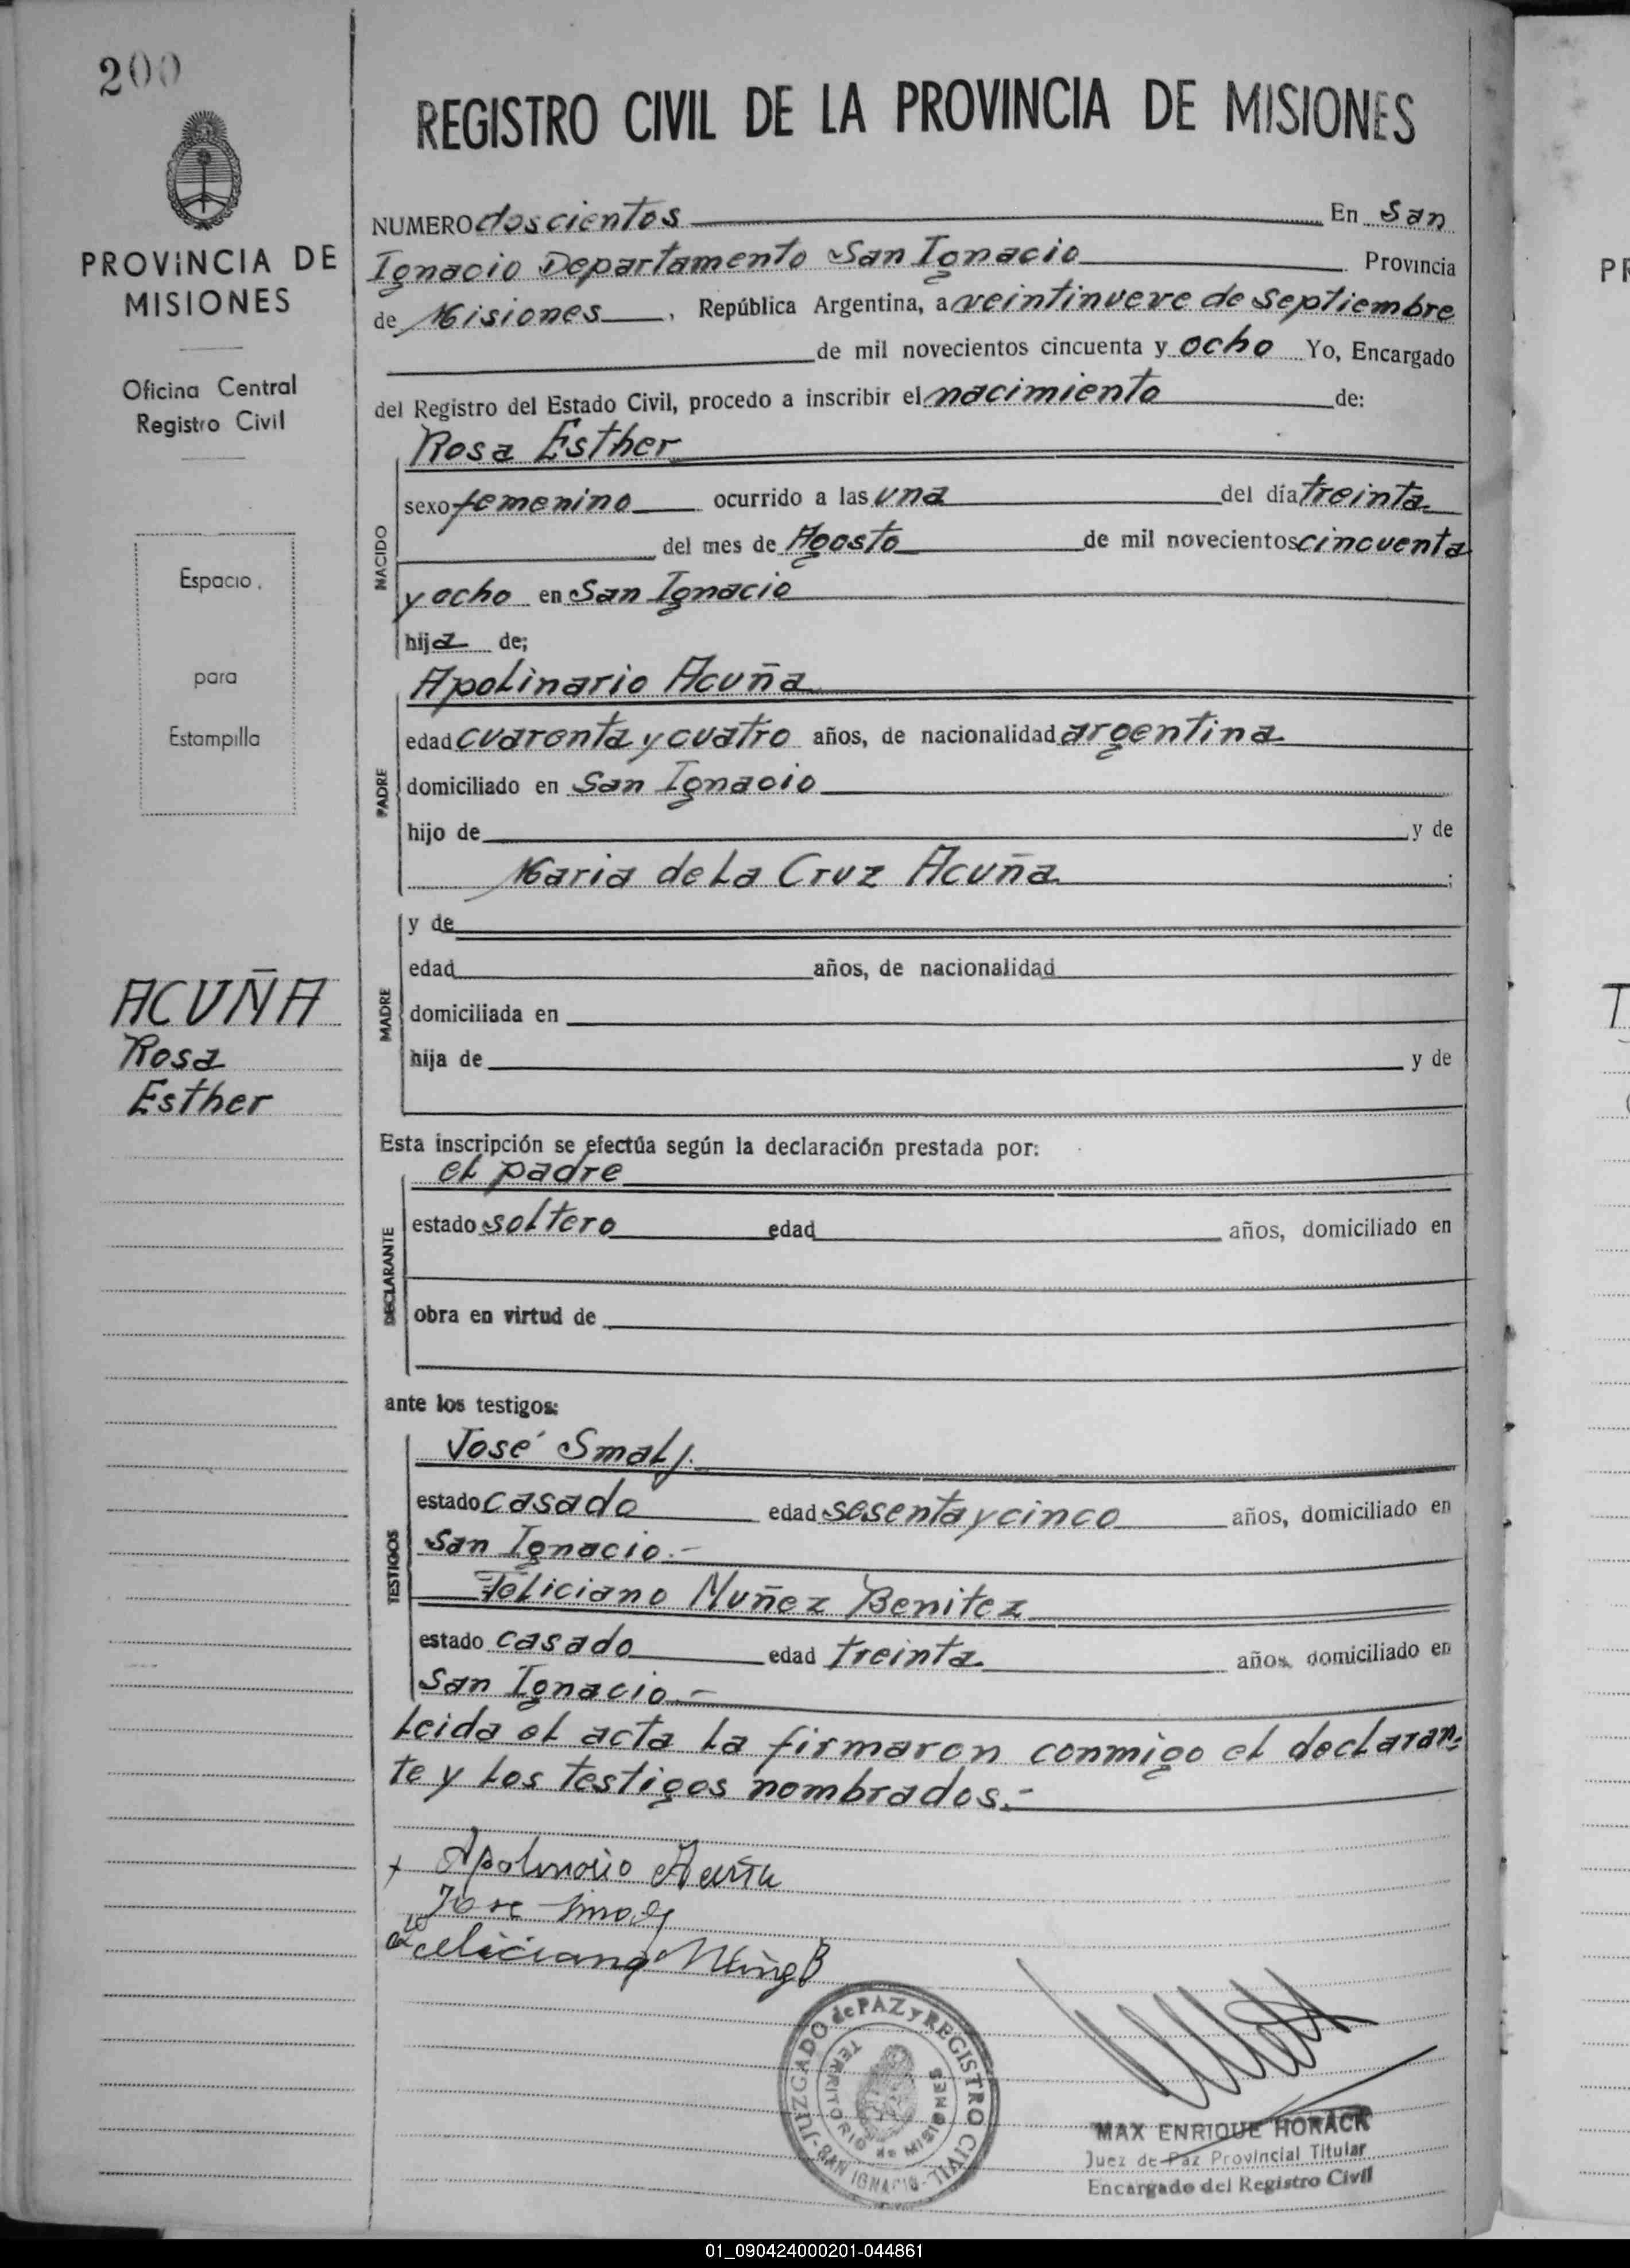 200
PROVINCIA DE
MISIONES
Oficina Central
Registro Civil
Espacio
para
Estampilla
ACUÑA
Rosa
Esther
REGISTRO CIVIL DE LA PROVINCIA DE MISIONES
NUMERO doscientos En San
Ignacio Departamento San Ignacio Provincia
de Misiones, República Argentina, a veintinueve de Septiembre
de mil novecientos cincuenta y ocho Yo, Encargado
del Registro del Estado Civil, procedo a inscribir el nacimiento de:
NACIDO
Rosa Esther
sexo femenino ocurrido a las una del día treinta
del mes de Agosto de mil novecientos cincuenta
y ocho en San Ignacio
hija de;
PADRE
Apolinario Acuña
edad cuarenta y cuatro años, de nacionalidad argentina
domiciliado en San Ignacio
hijo de y de
Maria de La Cruz Acuña;
MADRE
y de
edad años, de nacionalidad
domiciliada en
hija de y de
Esta inscripción se efectúa según la declaración prestada por:
DECLARANTE
el padre
estado soltero edad años, domiciliado en
obra en virtud de
ante los testigos:
TESTIGOS
José Smalj.
estado casado edad sesenta y cinco años, domiciliado en
San Ignacio.-
Feliciano Nuñez Benitez
estado casado edad treinta años, domiciliado en
San Ignacio.-
Leida el acta la firmaron conmigo el declaran-
te y los testigos nombrados.-
Apolinario Acuña
Jose
Feliciano
JUZGADO de PAZ y REGISTRO CIVIL
TERRITORIO de MISIONES
-SAN IGNACIO-
MAX ENRIQUE HORACK
Juez de Paz Provincial Titular
Encargado del Registro Civil
PR
01_090424000201-044861